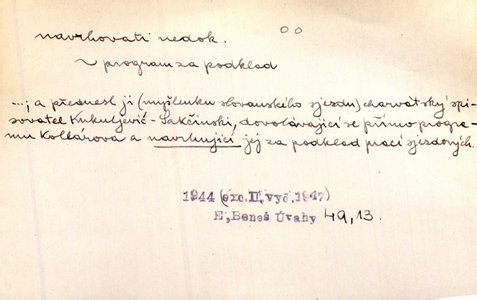 navrhovati nedok.
~ program za podklad
...; a přednesl ji (myšlenku slovanského sjezdu) charvátský spi-
sovatel Kukuljević-Sakčinski, dovolávající se přímo progra-
mu Kollárova a navrhující jej za podklad prací sjezdových.
1944 (exc. II. vyd. 1947)
E. Beneš Úvahy 49,13.